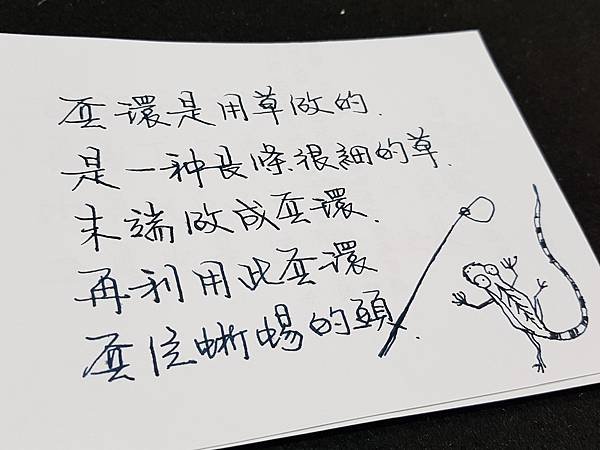 套環是用草做的.
是一种長條、很細的草.
末端做成套環.
再利用此套環
套住蜥蜴的頭.